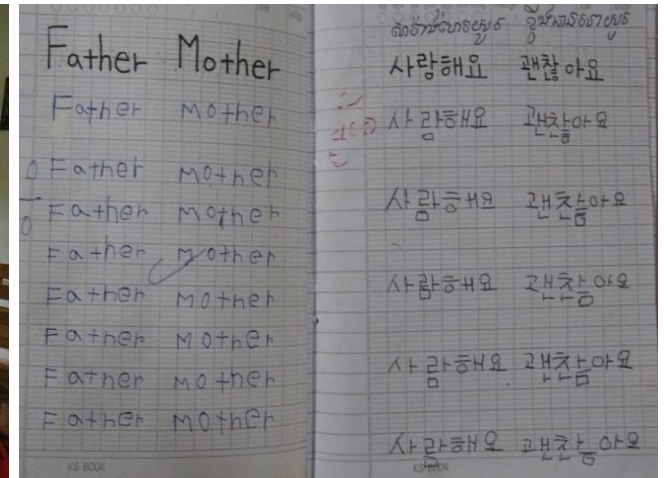 Father Mother
Father Mother
Father Mother
Father Mother
Father Mother
Father Mother
Father Mother
Father Mother
Father Mother
KS BOOK
사랑해요 괜찮아요
사람해요 괜찮아요
사람해요 괜찮아요
사람해요 괜찮아요
사람해요 괜찮아요
사람해요 괜찮아요
KS BOOK